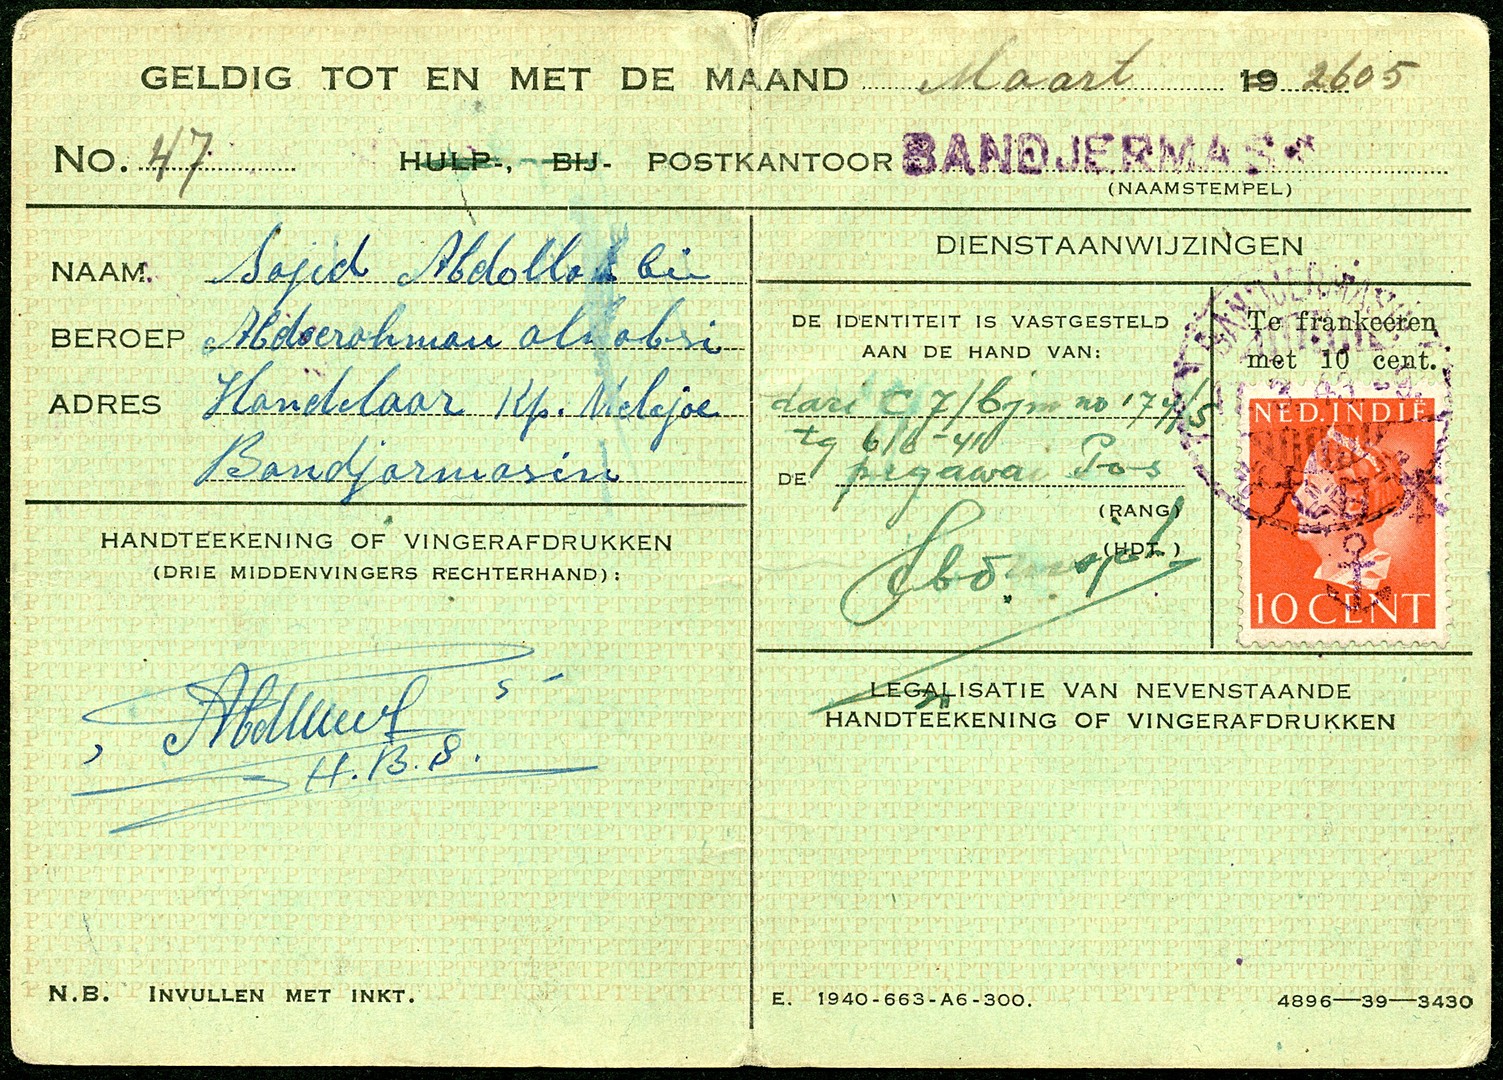 GELDIG TOT EN MET DE MAAND Maart 19 2605
No. 47 HULP-, BIJ- POSTKANTOOR BANDJERMAS
(NAAMSTEMPEL)
NAAM. Sajid Abdollah bin
BEROEP Abdoerohman alhabsi
ADRES Handelaar Kp. Melajoe
Bandjarmasin
HANDTEEKENING OF VINGERAFDRUKKEN
(DRIE MIDDENVINGERS RECHTERHAND):
H.B.S.
N.B. INVULLEN MET INKT.
DIENSTAANWIJZINGEN
DE IDENTITEIT IS VASTGESTELD
AAN DE HAND VAN:
dari C 7/Bjm no 174/5
tg 6/6-41
DE pegawai Pos
(RANG)
(HDT.)
Te frankeeren
met 10 cent.
NED. INDIË
10 CENT
LEGALISATIE VAN NEVENSTAANDE
HANDTEEKENING OF VINGERAFDRUKKEN
E. 1940-663-A6-300.
4896—39—3430